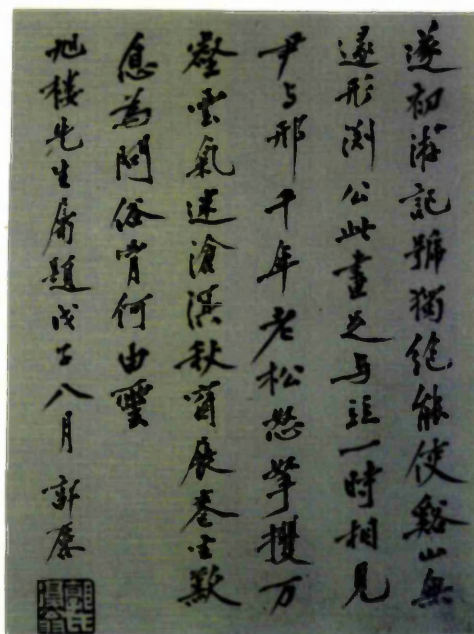 遂初游記號獨絕能使谿山無
遯形渊公此畫足与竝一時相見
尹与邢千年老松怒拏攫万
壑雲氣迷滄溟秋窗展卷生歎
息為問俗骨何由靈
旭樓先生屬題戊子八月 郭麐